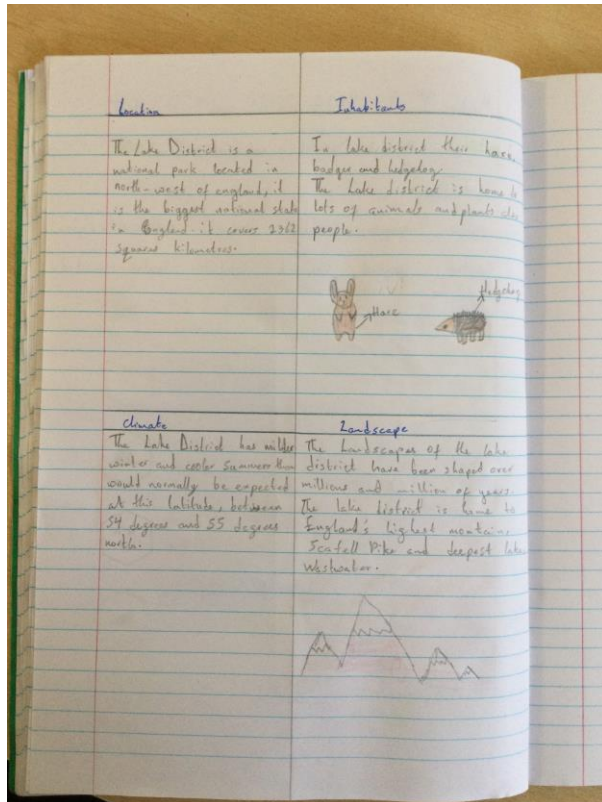 Location
The Lake District is a
national park located in
north-west of england, it
is the biggest national state
in England it covers 2362
square kilometres.
Inhabitants
In lake district their hare,
badger and hedgehog.
The Lake district is home to
lots of animals and plants also
people.
Hare
Hedgehog
climate
The Lake District has milder
winter and cooler summer than
would normally be expected
at this latitude, between
54 degrees and 55 degrees
north.
Landscape
The Landscapes of the lake
district have been shaped over
millions and million of years.
The lake district is home to
England's highest montain,
Scafell Pike and deepest lake
Wastwater.